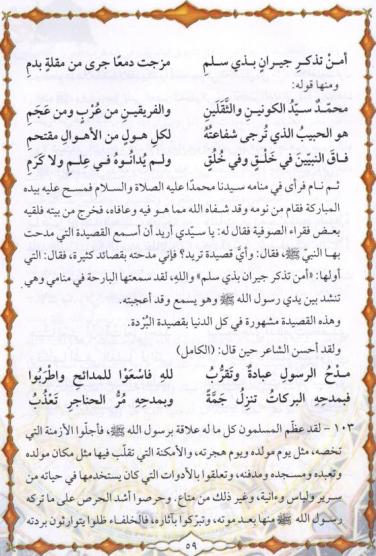 أمنْ تذكرِ جيرانٍ بذي سلمِ مزجت دمعًا جرى من مقلةٍ بدمِ
ومنها قوله:
محمدٌ سيّدُ الكونينِ والثَّقلَينِ والفريقينِ من عُرْبٍ ومن عَجَمِ
هو الحبيبُ الذي تُرجى شفاعتُهُ لكلِ هولٍ من الأهوالِ مقتحمِ
فاقَ النبيّينَ في خَلْقٍ وفي خُلُقٍ ولم يُدانُوهُ في علمٍ ولا كَرَمِ
ثم نام فرأى في منامه سيدنا محمدًا عليه الصلاة والسلام فمسح عليه بيده
المباركة فقام من نومه وقد شفاه الله مما هو فيه وعافاه، فخرج من بيته فلقيه
بعض فقراء الصوفية فقال له: يا سيّدي أريد أن أسمع القصيدة التي مدحت
بها النبيّ ﷺ، فقال: وأيَّ قصيدة تريد؟ فإني مدحته بقصائد كثيرة، فقال: التي
أولها: «أمن تذكر جيران بذي سلم» واللهِ، لقد سمعتها البارحة في منامي وهي
تنشد بين يدي رسول الله ﷺ وهو يسمع وقد أعجبته.
وهذه القصيدة مشهورة في كل الدنيا بقصيدة البُرْدة.
ولقد أحسن الشاعر حين قال: (الكامل)
مدْحُ الرسولِ عبادةٌ وتقرُّبُ للهِ فاسْعَوْا للمدائحِ واطْرَبُوا
فبمدحهِ البركاتُ تنزِلُ جَمَّةً وبمدحهِ مُرُّ الحناجرِ تَعْذُبُ
١٠٣ - لقد عظّم المسلمون كل ما له علاقة برسول الله ﷺ، فأجلّوا الأزمنة التي
تخصه، مثل يوم مولده ويوم هجرته، والأمكنة التي تقلّب فيها مثل مكان مولده
وتعبده ومسجده ومدفنه، وتعلقوا بالأدوات التي كان يستخدمها في حياته من
سرير ولباس وءانية، وغير ذلك من متاع. وحرصوا أشد الحرص على ما تركه
رسول الله ﷺ منها بعد موته، وتبرّكوا بآثاره، فالخلفاء ظلوا يتوارثون بردته
٥٩